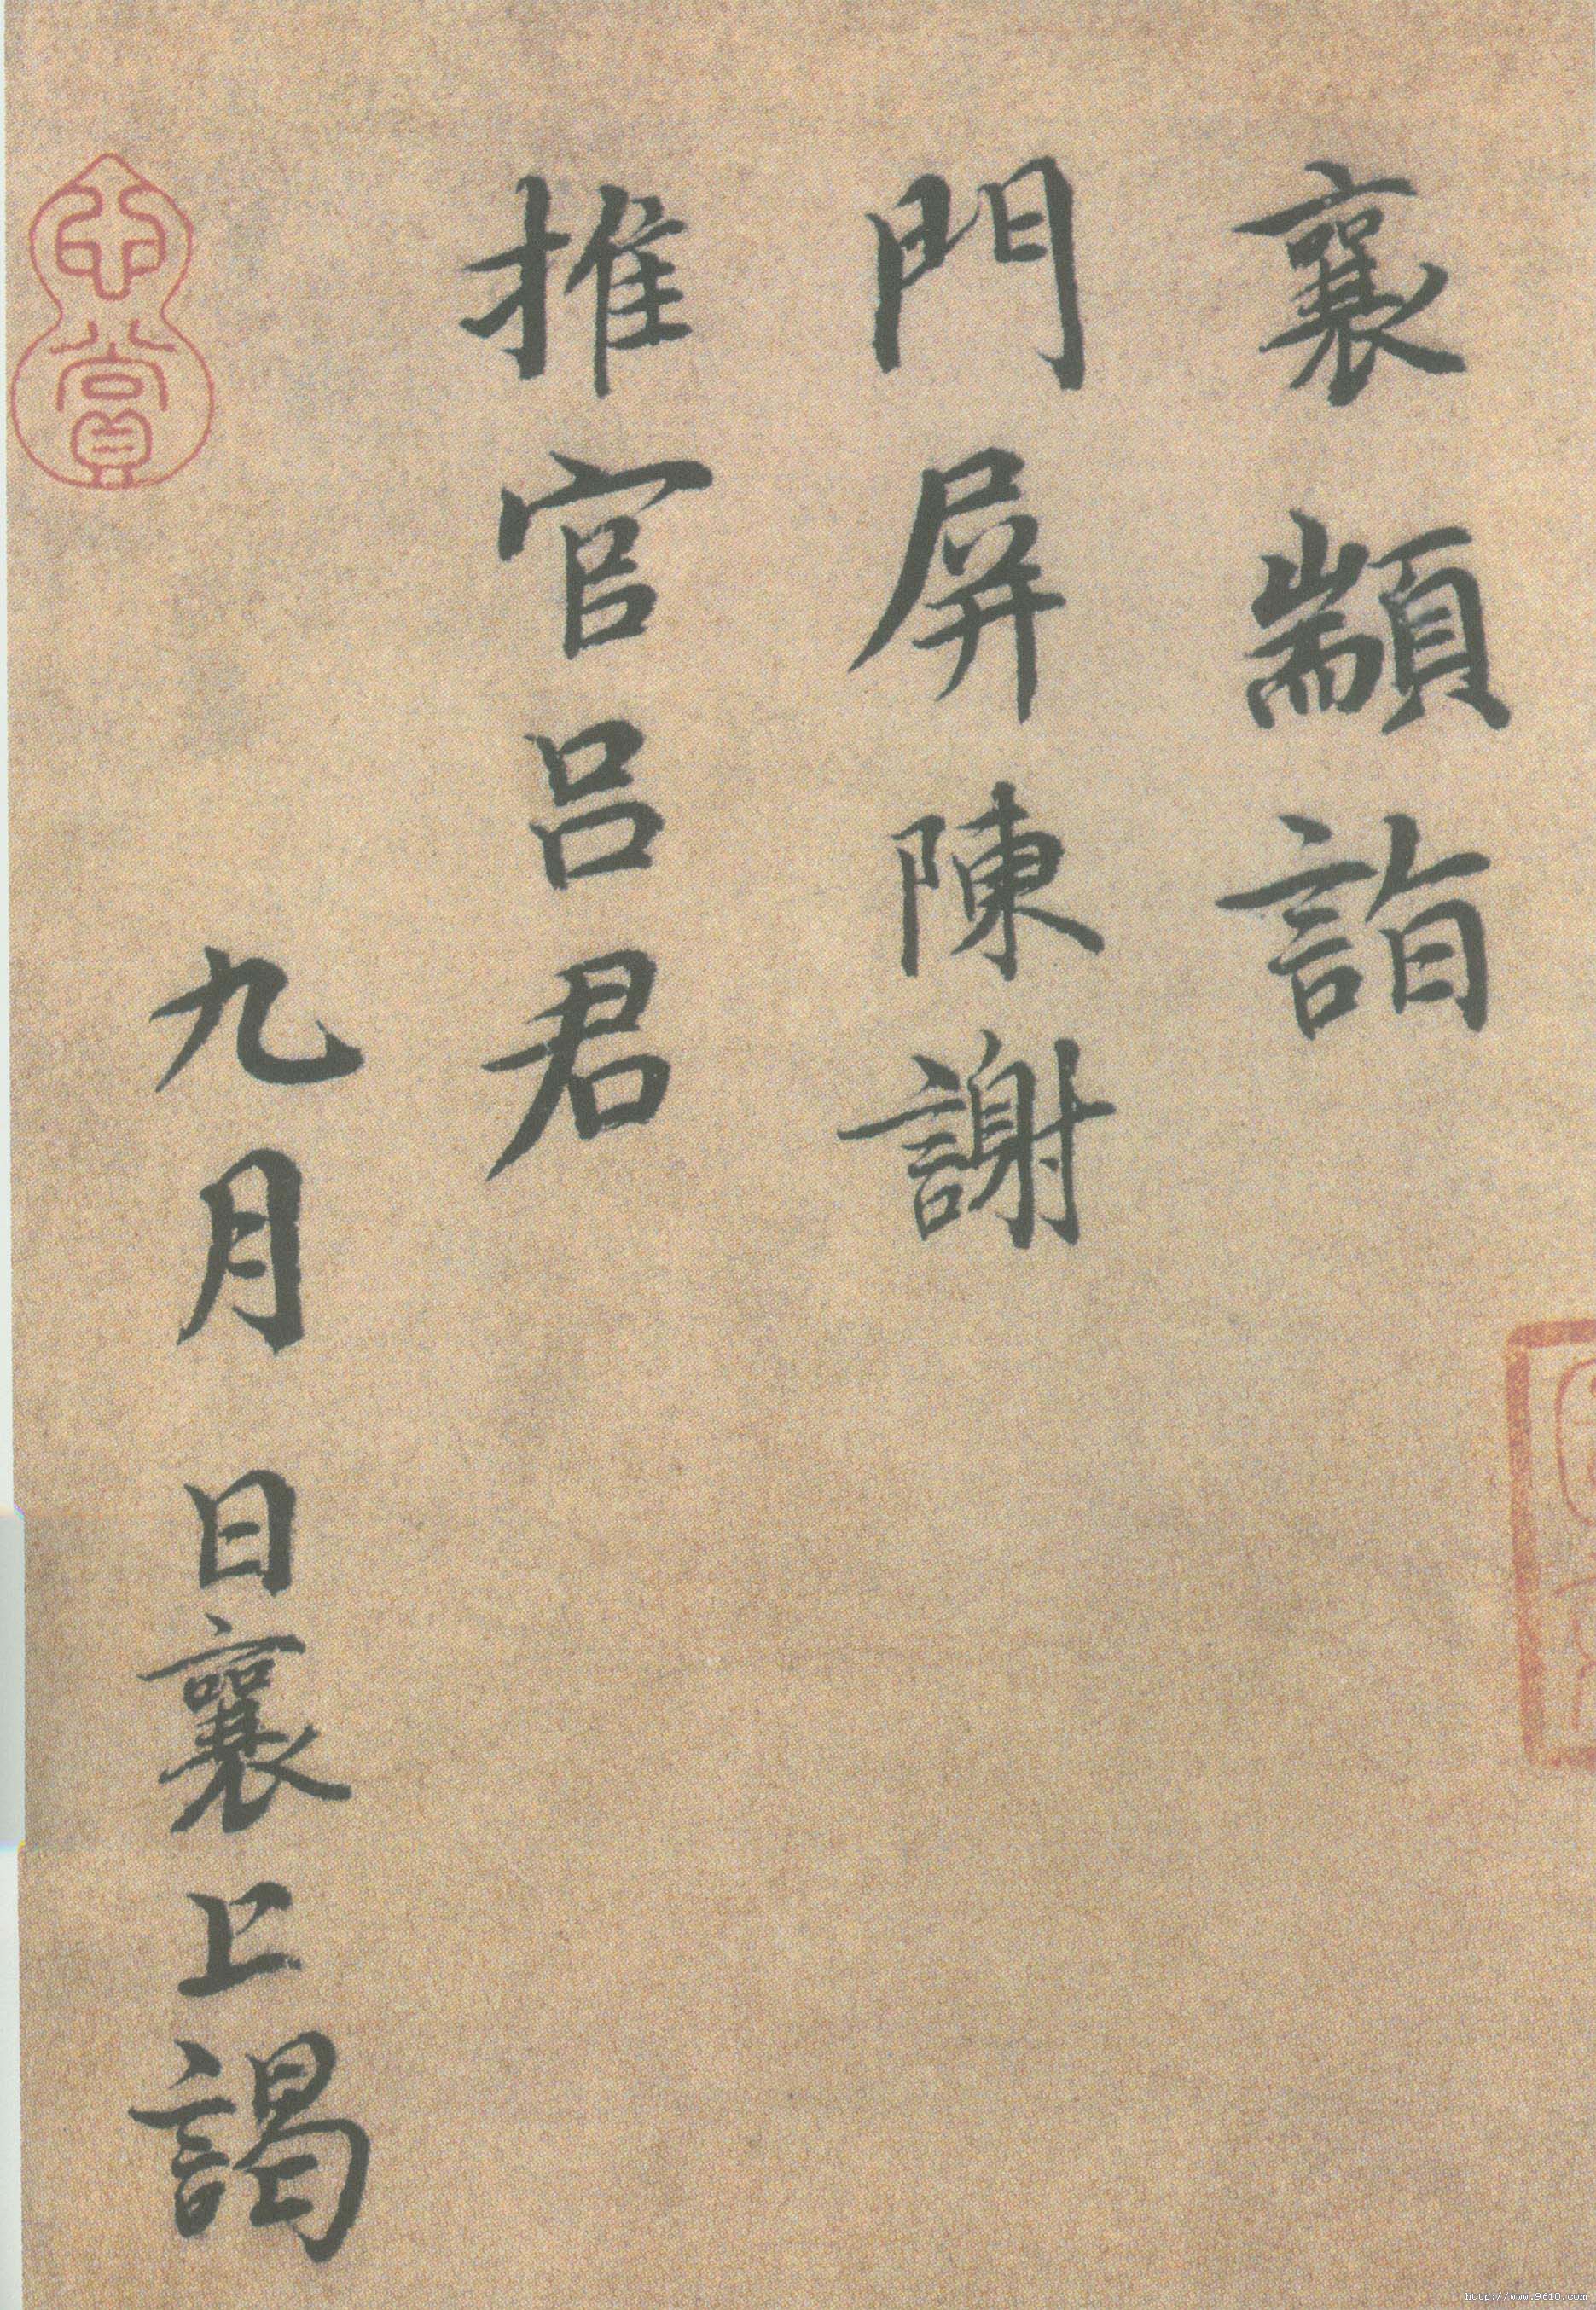 襄顓詣
門屏陳謝
推官呂君
九月日襄上謁
賞
http://www.9610.com